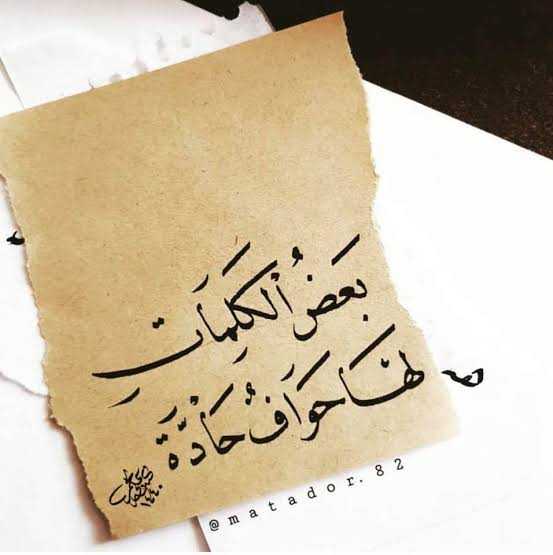 بَعضُ الْكَلِمَاتِ
لهَا حَوَافٌ حَادَّة
١٤٤٠
@matador.82